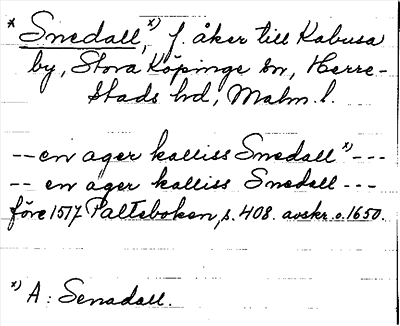 * Smedall,*) f. åker till Kabusa
by, Stora Köpinge sn, Herre-
stads hd, Malm. l.
-- en ager kalliss Smedall*) ---
-- en ager kalliss Smedall ---
före 1517 Palteboken, s. 408. avskr. o. 1650.
*) A: Senadall.